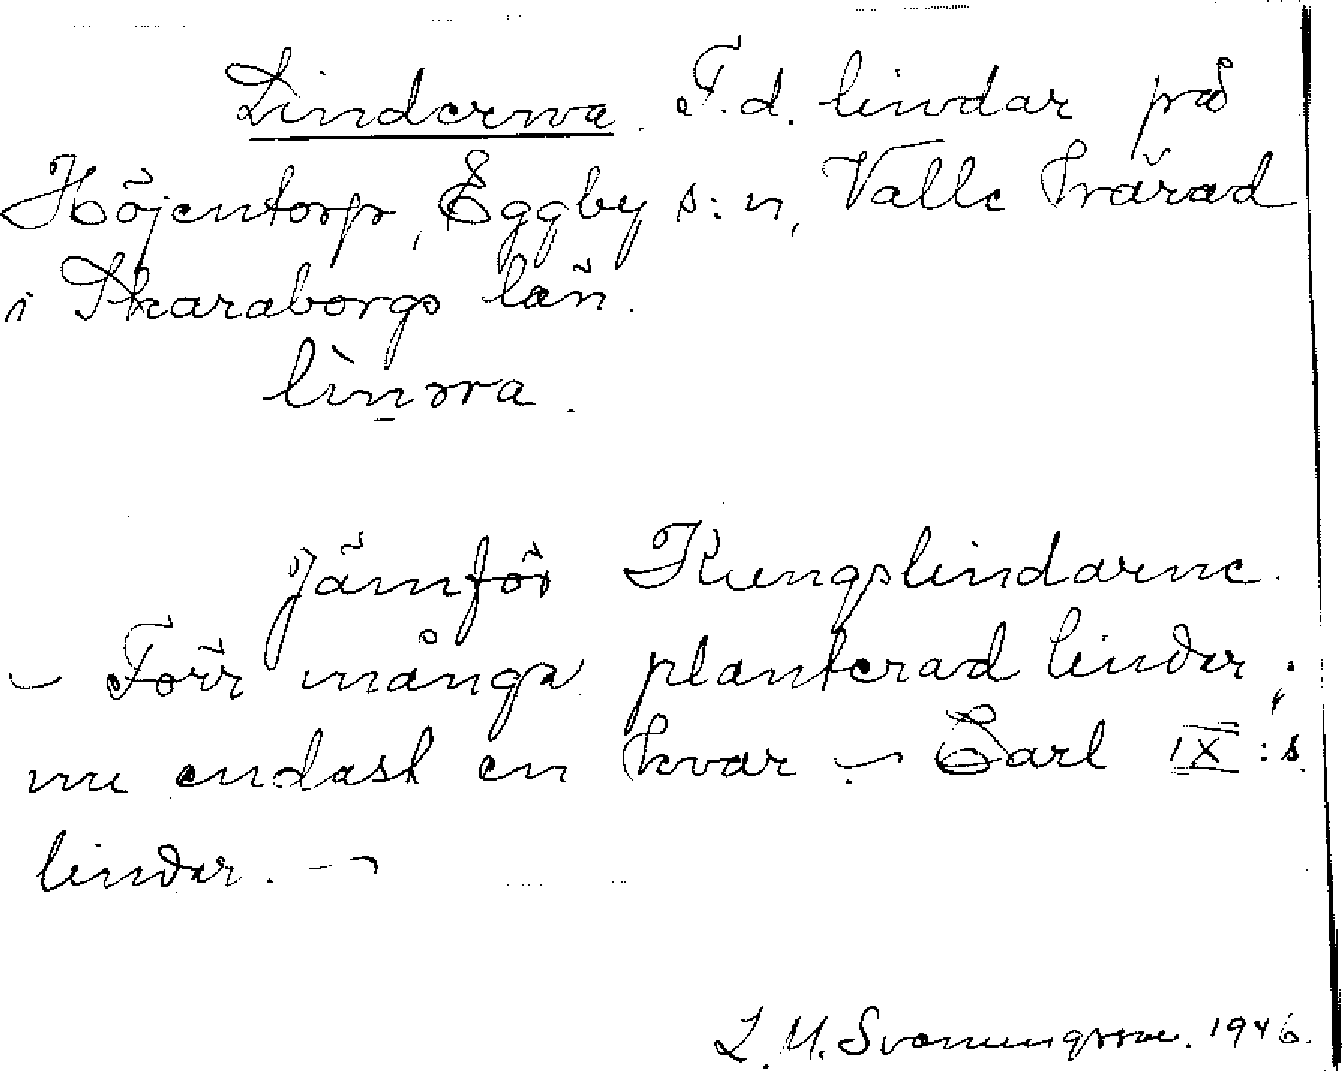 Linderna. F.d. lindar på
Höjentorp, Eggby s:n, Valle härad
i Skaraborgs län.
Jämför Kungslindarne.
– Förr många planterad lindar;
nu endast en kvar – Carl IX:s
lindar. –
L. M. Svenungsson. 1946.